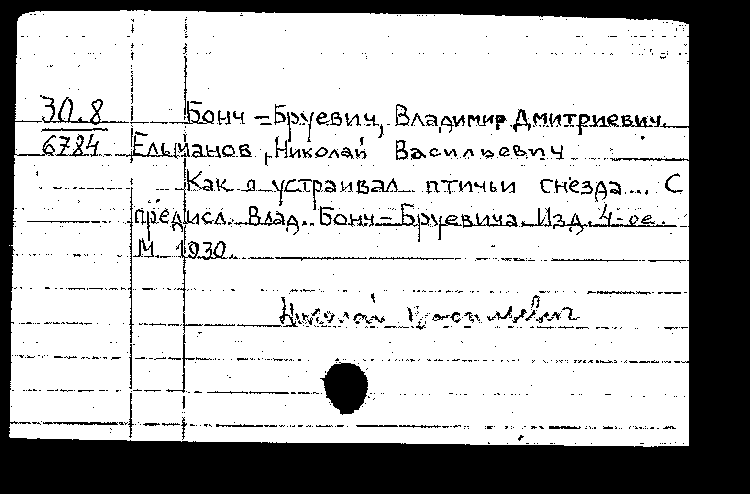 30.8
6784
Бонч=Бруевич, Владимир Дмитриевич.
Ельманов, Николай Васильевич
Как я устраивал птичьи гнезда... С
предисл. Влад. Бонч=Бруевича. Изд. 4-ое.
М. 1930.
Николай Васильевич